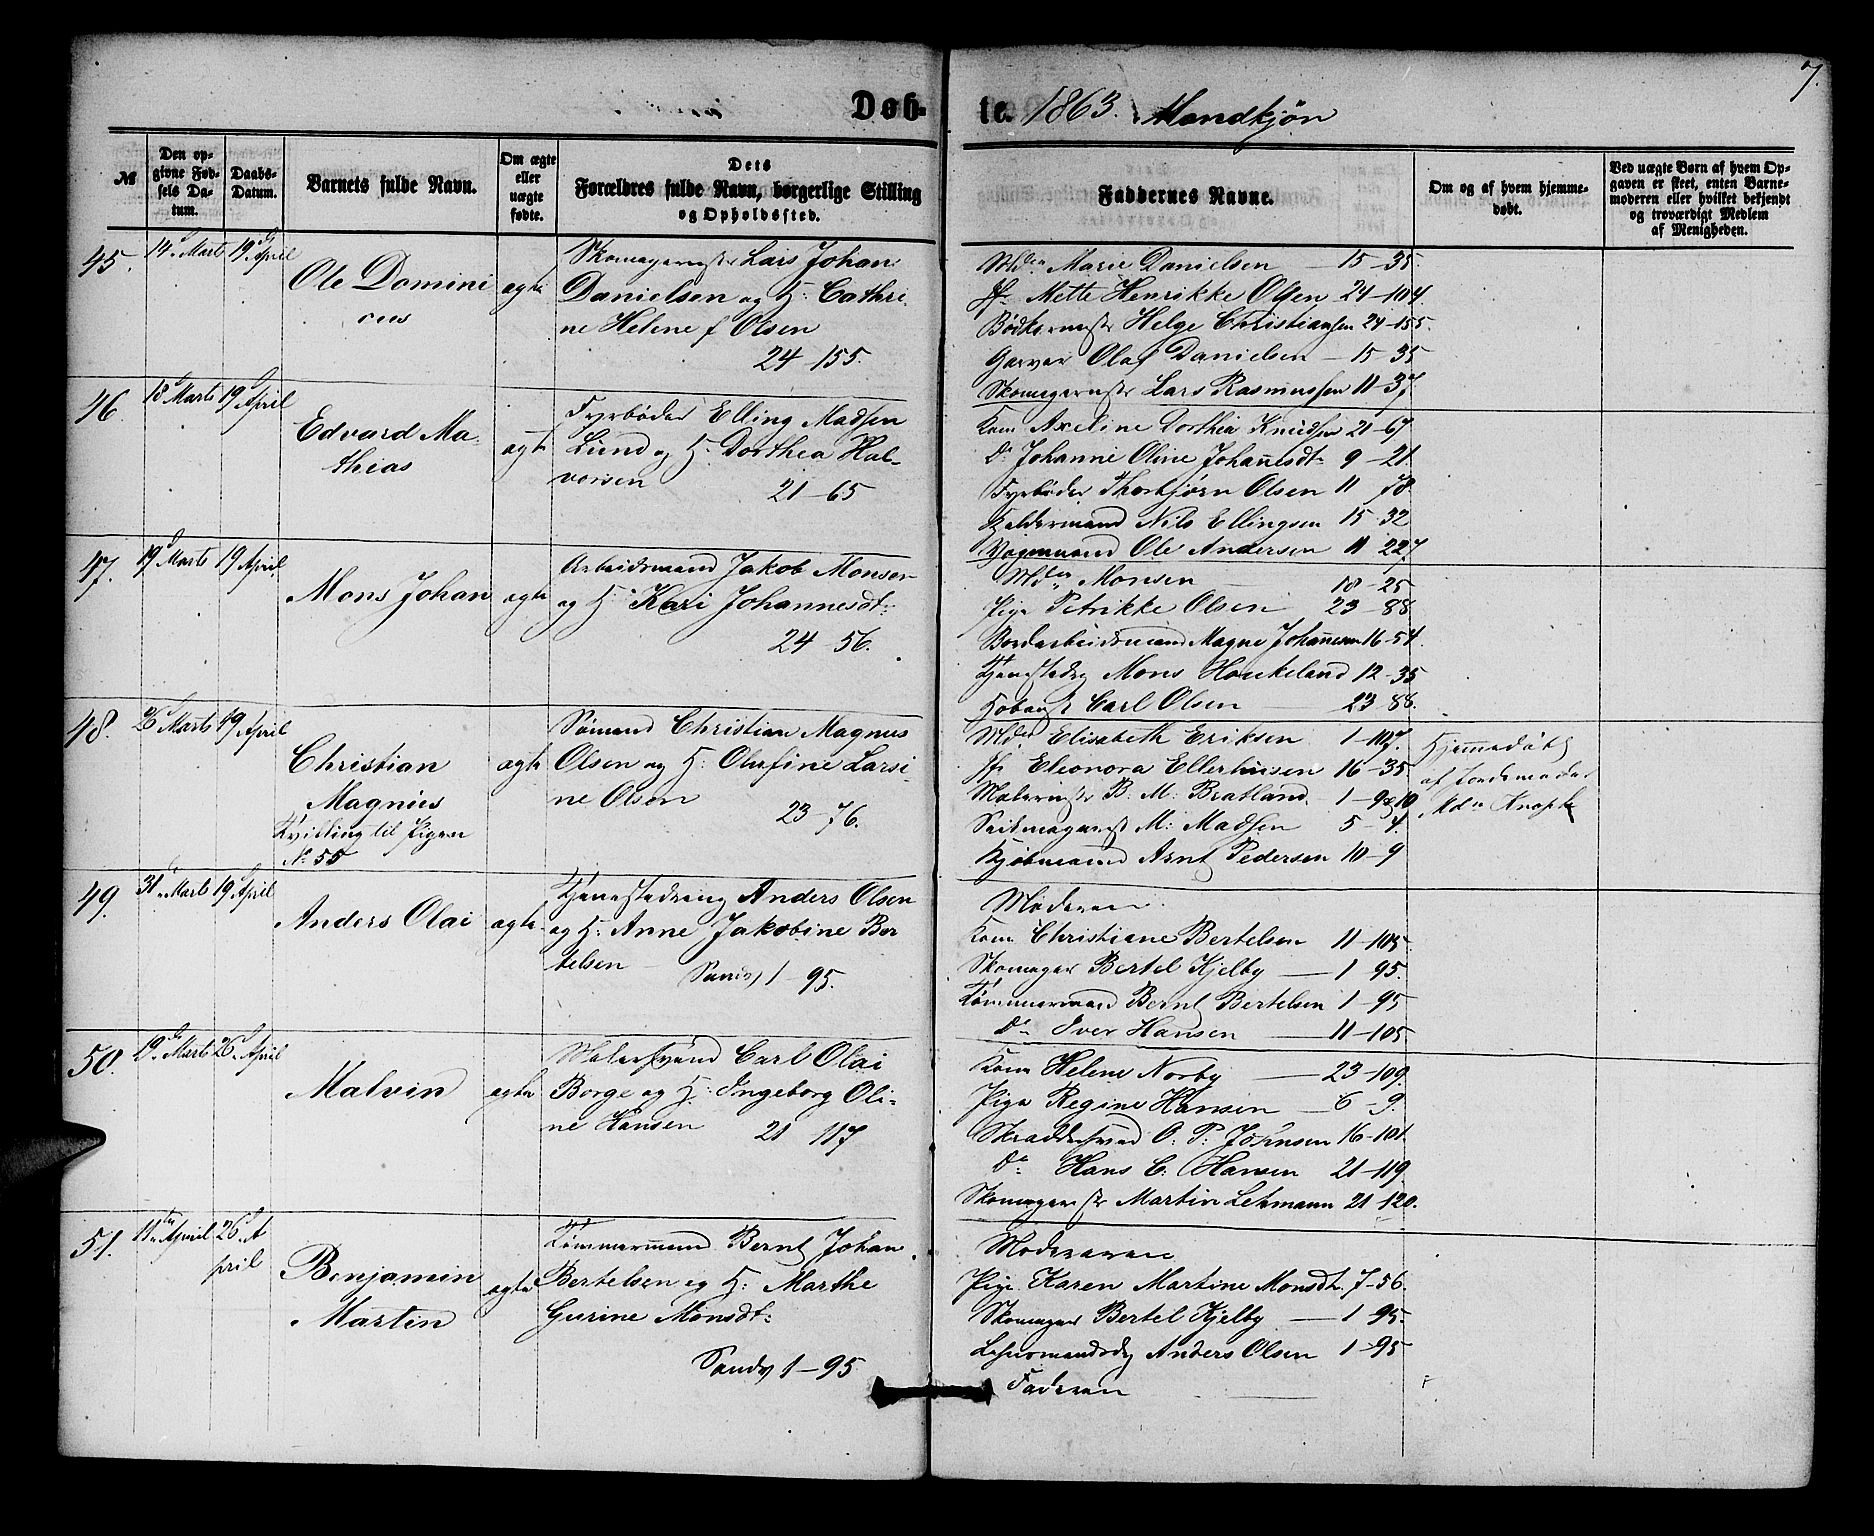 7.
Døb-te. 1863. Mandkjøn
№
Den opgivne Fødsels Datum.
Daabs-Datum.
Barnets fulde Navn.
Om ægte eller uægte fødte.
Dets Forældres fulde Navn, borgerlige Stilling og Opholdssted.
Faddernes Navne.
Om og af hvem hjemmedøbt.
Ved uægte Børn af hvem Opgaven er skeet, enten Barnemoderen eller hvilket bekjendt og troværdigt Medlem af Menigheden.
45. 14 Marts 19 April
Ole Domini
cus
ægte
Skomagermstr Lars Johan
Danielsen og H: Cathri
ne Helene f Olsen
24-155.
Mdm Marie Danielsen 15-35.
Jf. Mette Henrikke Olsen 24-104.
Bødkermstr Helge Christiansen 24-155.
Garver Olaf Danielsen 15-35
Skomagermstr Lars Rasmussen 11-37
46. 18 Marts 19 April
Edvard Ma
thias
ægte
Fyrbøder Elling Madsen
Lund og H: Dorthea Hal-
vorsen 21-65
Kone Axeline Dorthea Knudsen 21-67
Do Johanne Oline Johannesdt 9-21.
Fyrbøder Thorbjørn Olsen 11 78.
Holdermand Nils Ellingsen 15-32
Vognmand Ole Andersen 11 227.
47. 19 Marts 19 April
Mons Johan
ægte
Arbeidsmand Jakob Monsen
og H: Kari Johannesdt:
24-56.
Moder Monsen 18-25
Pige Petrikke Olsen 23-88
Bordarbeidsmand Magne Johannesen 16-54
Tjenestedrg Mons Haukeland 12-35
Carl Olsen 23-88.
48. 26 Marts 19 April
Christian
Magnus
Tvilling til Pigen
No 55
ægte
Sømand Christian Magnus
Olsen og H: Olufine Larsi-
ne Olsen 23-76.
Mdm Elisabeth Eriksen 1-107.
Jfr Eleonora Ellerhusen 16-35
Malermstr B. M. Bratland. 1-9&10
Seilmagermst M: Madsen 5-4.
Kjøbmand Arnt Pedersen 10-9
Hjemmedøbt
af Jordemoder
Mdm Knoph
49. 31 Marts 19 April
Anders Olai
ægte
Tjenestedreng Anders Olsen
og H: Anne Jakobine Ber
telsen Sandv 1-95.
Moderen
Kone Christiane Bertelsen 11-105
Skomager Bertel Kjelby 1 95.
Tømmermand Bernt Bertelsen 1-95
Do Iver Hansen 11-105
50. 19de Marts 26 April
Malvin
ægte
Malersvend Carl Olai
Borge og H: Ingeborg Oli-
ne Hansen 21 117
Kone Helene Norby 23-109.
Pige Regine Hansen 6-9.
Skræddersvend O. P. Johnsen 16-101.
Do Hans C. Hansen 21-119.
Skomagermstr Martin Lehmann 21-120.
51. 11te April 26 A
pril
Benjamin
Martin
ægte
Tømmermand Bernt Johan
Bertelsen og H: Marthe
Gurine Monsdt:
Sandv 1-95
Moderen
Pige Karen Martine Monsdt. 7-56.
Skomager Bertel Kjelby 1-95.
Anders Olsen 1-95
Faderen